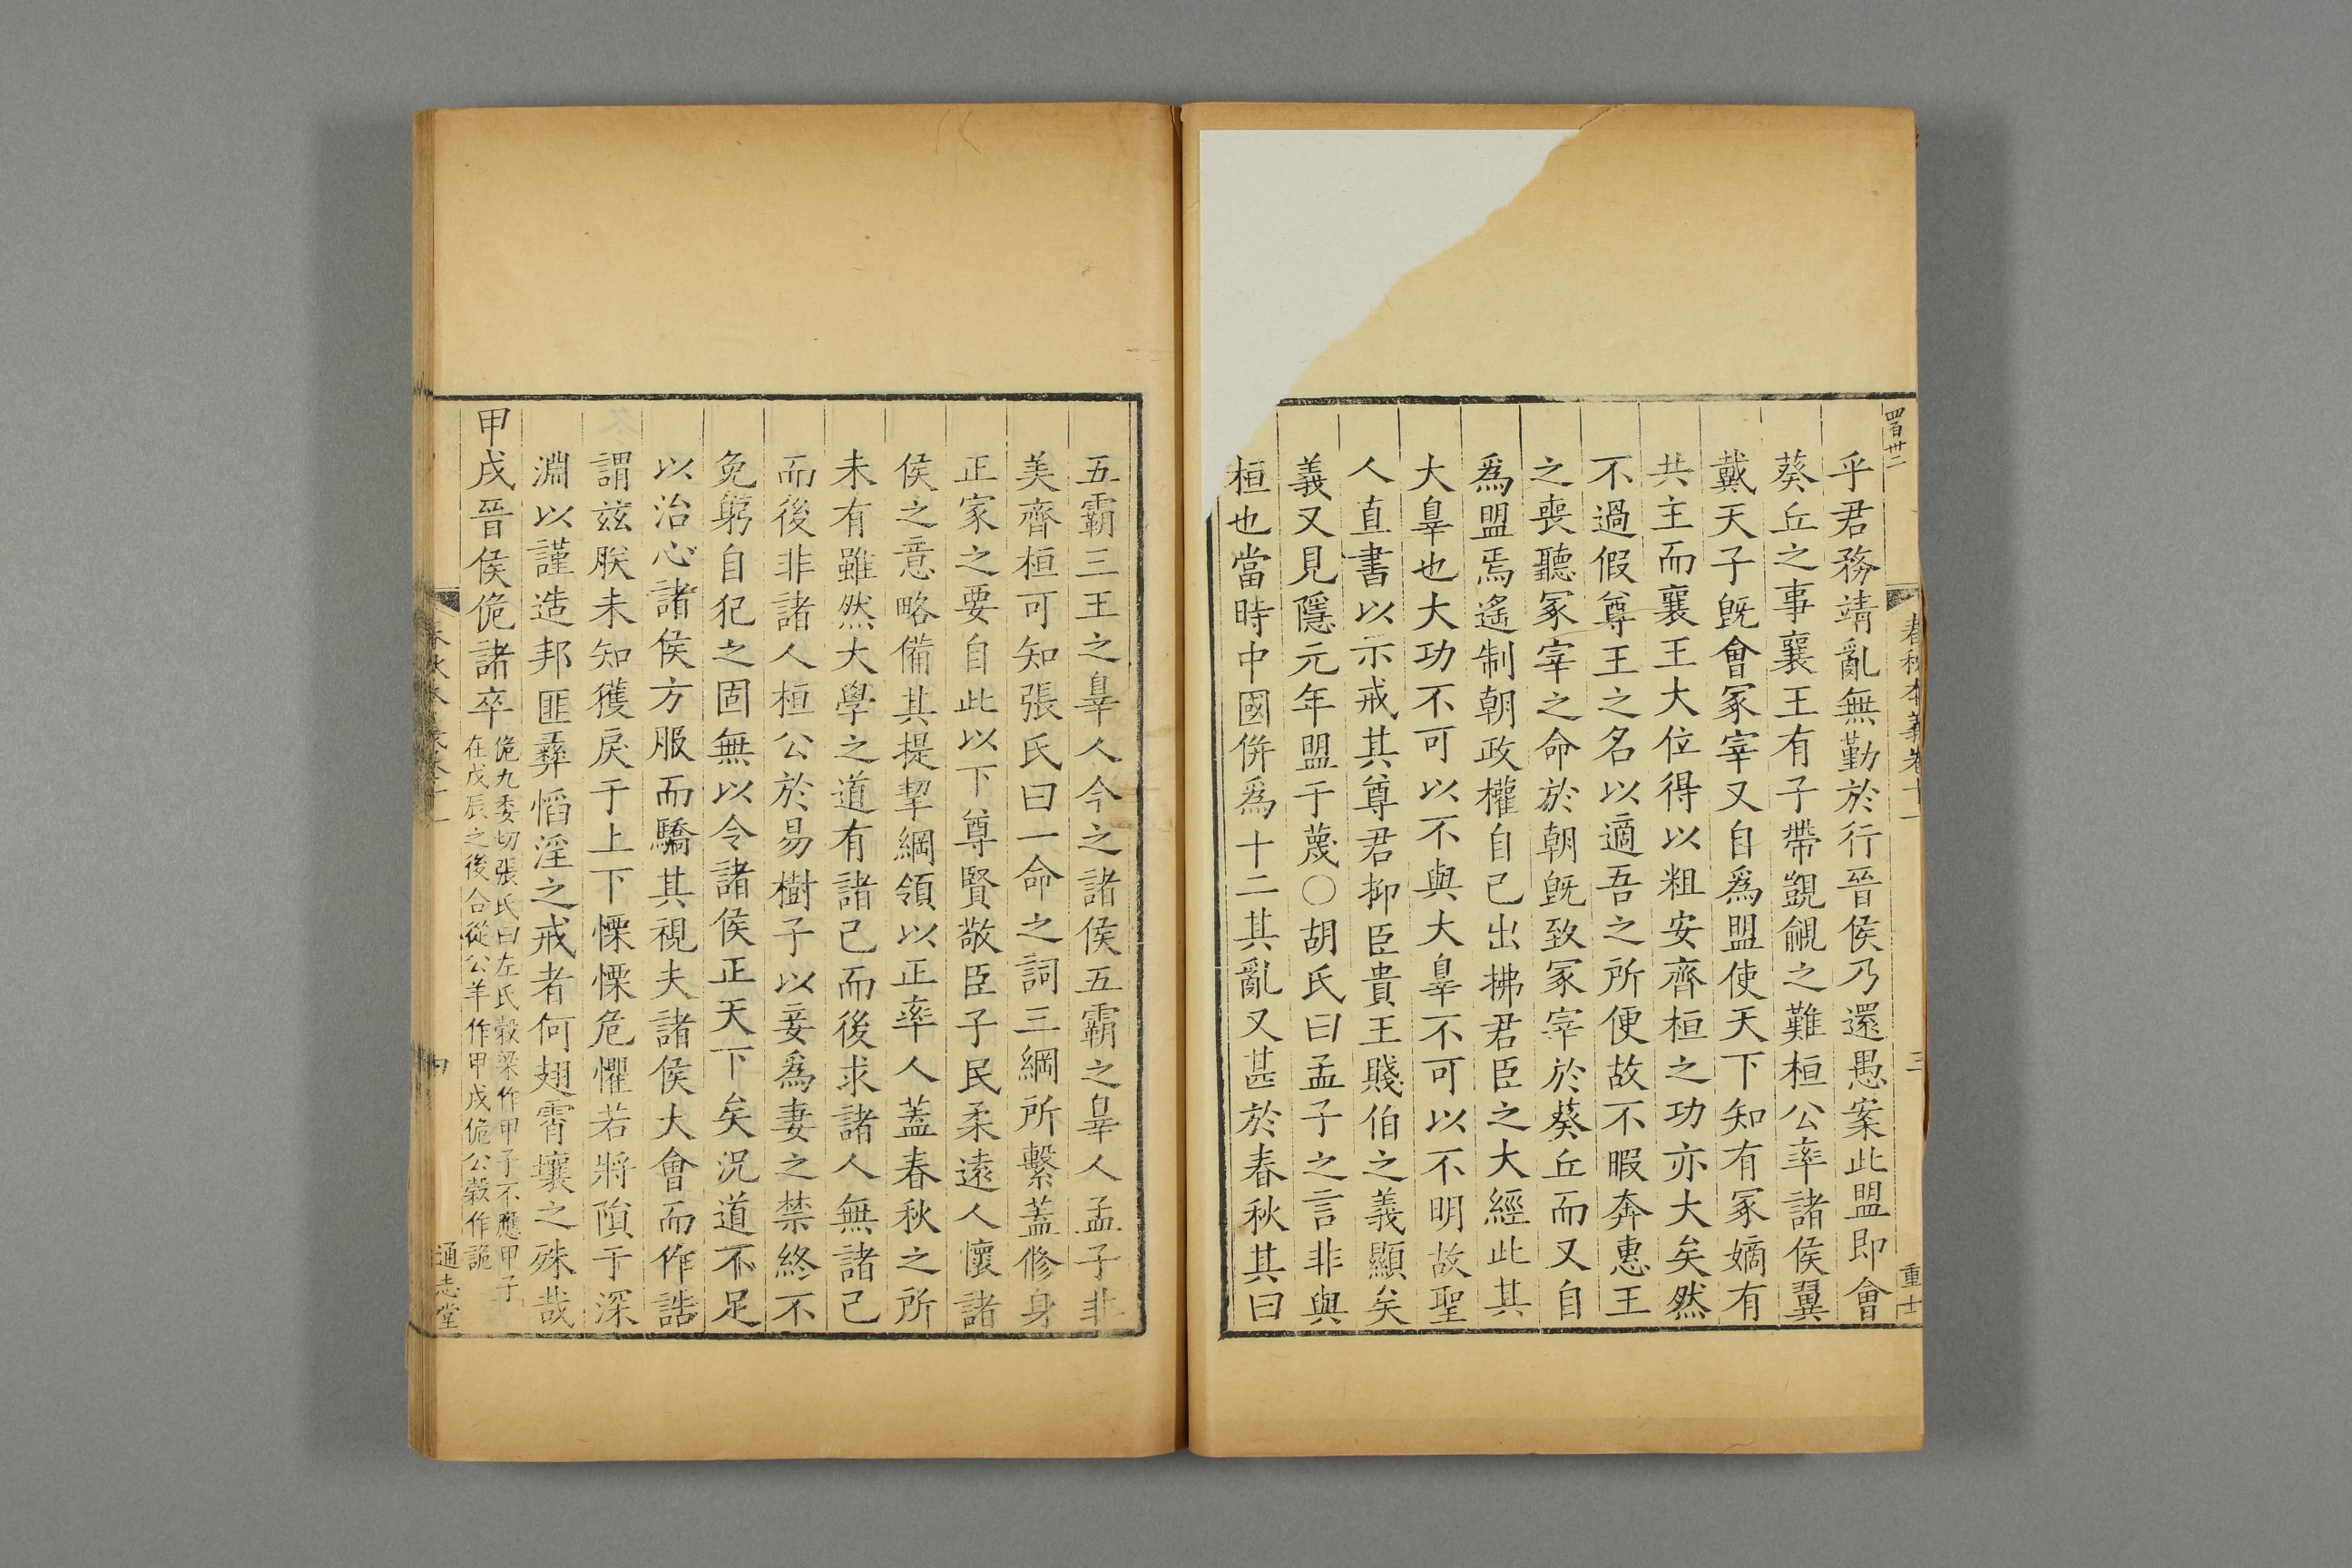 四百卅二
春秋本義卷十一
三
重士
乎君務靖亂無勤於行晉侯乃還愚案此盟即會
葵丘之事襄王有子帶覬覦之難桓公率諸侯翼
戴天子旣會冢宰又自爲盟使天下知有冢嫡有
共主而襄王大位得以粗安齊桓之功亦大矣然
不過假尊王之名以適吾之所便故不暇奔惠王
之喪聽冢宰之命於朝旣致冢宰於葵丘而又自
爲盟焉遙制朝政權自己出拂君臣之大經此其
大辠也大功不可以不與大辠不可以不明故聖
人直書以示戒其尊君抑臣貴王賤伯之義顯矣
義又見隱元年盟于蔑○胡氏曰孟子之言非與
桓也當時中國倂爲十二其亂又甚於春秋其曰
五霸三王之辠人今之諸侯五霸之辠人孟子非
美齊桓可知張氏曰一命之詞三綱所繫蓋修身
正家之要自此以下尊賢敬臣子民柔遠人懷諸
侯之意略備其提挈綱領以正率人蓋春秋之所
未有雖然大學之道有諸己而後求諸人無諸己
而後非諸人桓公於易樹子以妾爲妻之禁終不
免躬自犯之固無以令諸侯正天下矣況道不足
以治心諸侯方服而驕其視夫諸侯大會而作誥
謂兹朕未知獲戾于上下慄慄危懼若將隕于深
淵以謹造邦匪彝慆淫之戒者何翅霄壤之殊哉
甲戌晉侯佹諸卒
佹九委切張氏曰左氏穀梁作甲子不應甲子
在戊辰之後合從公羊作甲戌佹公穀作詭
通志堂